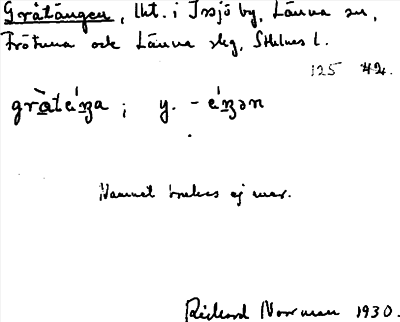 Gråtängen, lht. i Insjö by, Länna sn,
Frötuna och Länna skg, Sthlms l.
125 42.
gràtéŋa ; y. - éŋən
Namnet brukas ej mer.
Rickard Norrman 1930.